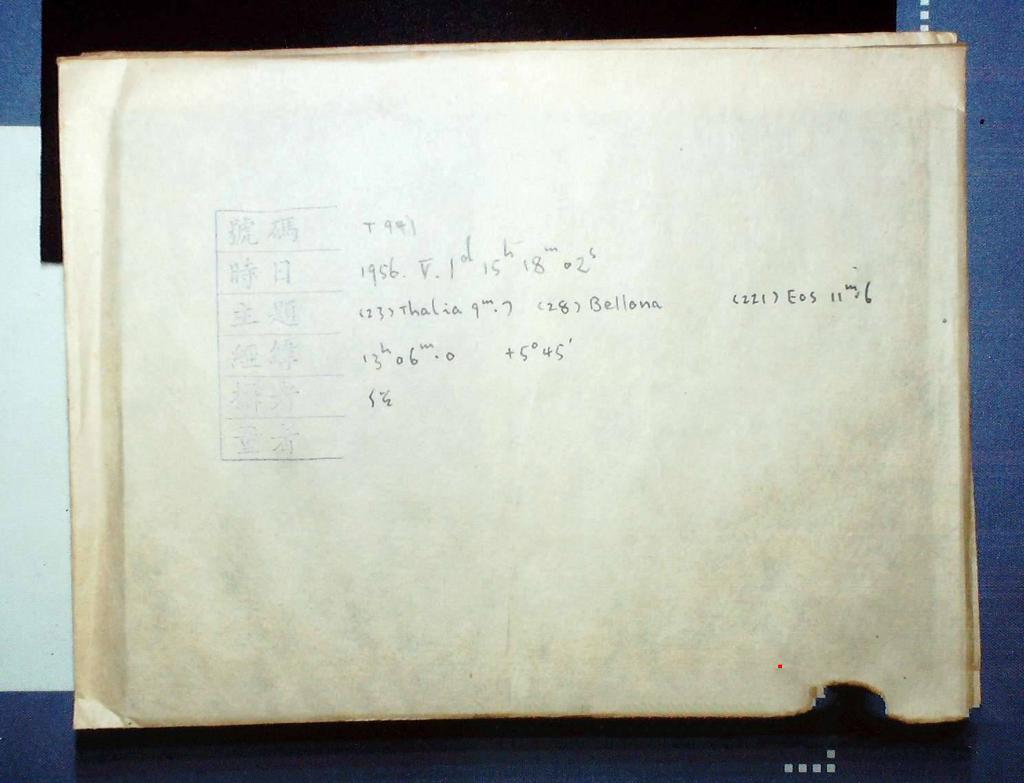 號碼 T941
時日 1956. V. 1ᵈ 15ʰ 18ᵐ 02ˢ
主題 (23) Thalia 9ᵐ.7 (28) Bellona (221) Eos 11ᵐ.6
經緯 13ʰ 06ᵐ.0 +5° 45′
攝者
量者